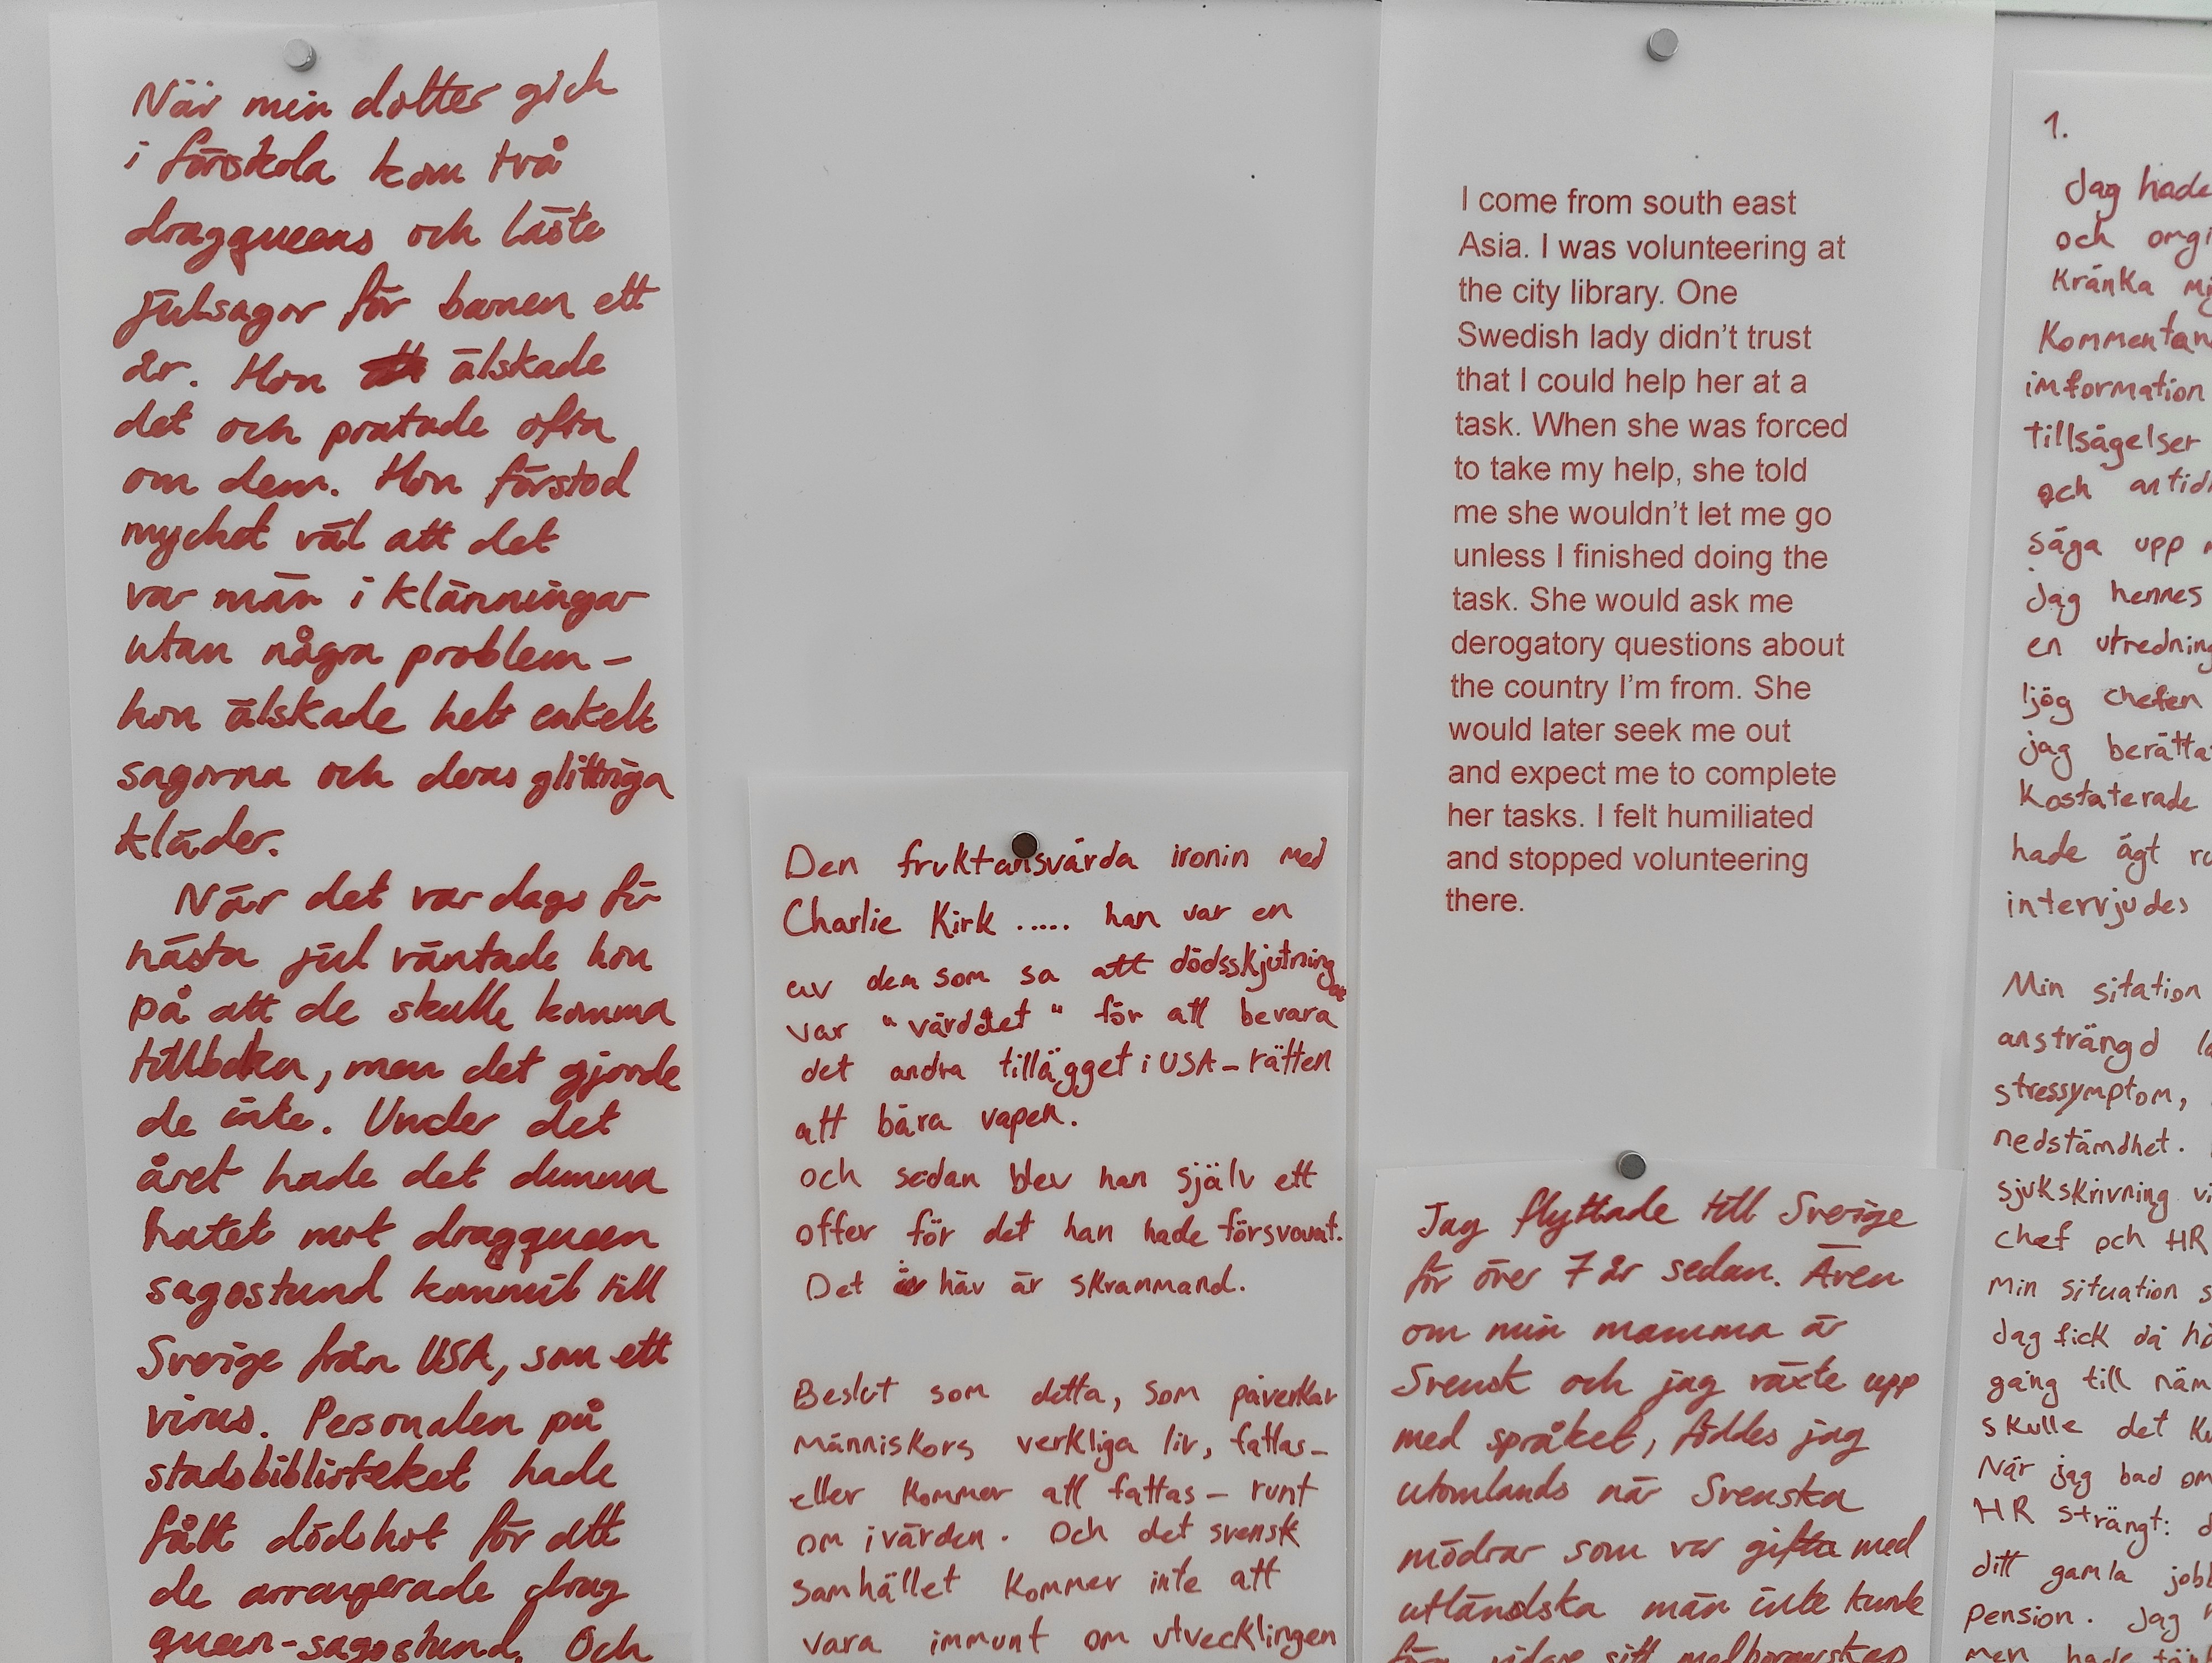 När min dotter gick
i förskola kom två
dragqueens och läste
julsagor för barnen ett
år. Hon älskade
det och pratade ofta
om dem. Hon förstod
mycket väl att det
var män i klänningar
utan några problem –
hon älskade helt enkelt
sagorna och deras glittriga
kläder.
När det var dags för
nästa jul väntade hon
på att de skulle komma
tillbaka, men det gjorde
de inte. Under det
året hade det dumma
hatet mot dragqueen
sagostund kommit till
Sverige från USA, som ett
virus. Personalen på
stadsbiblioteket hade
fått dödshot för att
de arrangerade drag
queen-sagostund. Och
Den fruktansvärda ironin med
Charlie Kirk ..... han var en
av dem som sa att dödsskjutningar
var "värddet" för att bevara
det andra tillägget i USA – rätten
att bära vapen.
och sedan blev han själv ett
offer för det han hade försvarat.
Det här är skrammand.
Beslut som detta, som påverkar
människors verkliga liv, fattas –
eller kommer att fattas – runt
om i värden. Och det svensk
samhället kommer inte att
vara immunt om utvecklingen
I come from south east
Asia. I was volunteering at
the city library. One
Swedish lady didn't trust
that I could help her at a
task. When she was forced
to take my help, she told
me she wouldn't let me go
unless I finished doing the
task. She would ask me
derogatory questions about
the country I'm from. She
would later seek me out
and expect me to complete
her tasks. I felt humiliated
and stopped volunteering
there.
Jag flyttade till Sverige
för över 7 år sedan. Även
om min mamma är
Svensk och jag växte upp
med språket, föddes jag
utomlands när Svenska
mödrar som var gifta med
utländska män inte kunde
föra vidare sitt medborgarskap
1.
Jag hade
och
kränka
Kommentar
imformation
tillsägelser
och
säga upp
jag hennes
en utredning
ljög chefen
jag berätta
Kostaterade
hade ägt
intervjudes
Min sitation
ansträngd
stressymptom,
nedstämdhet.
sjukskrivning
chef och HR
Min situation
Jag fick då
gång till
skulle det
När jag bad om
HR strängt:
ditt gamla jobb
pension. Jag
men hade